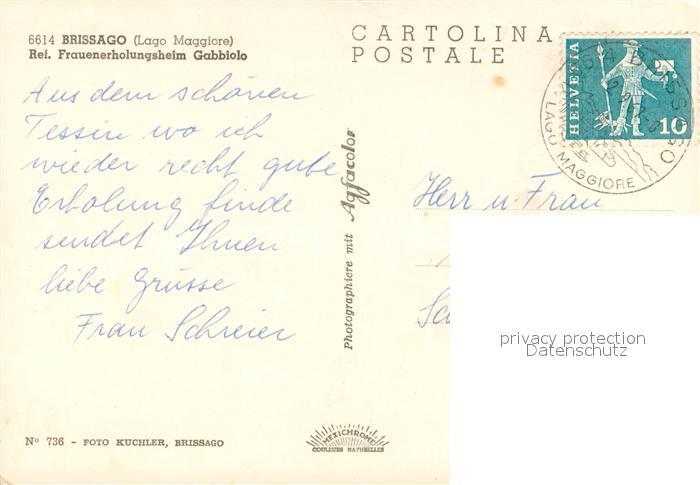 6614 BRISSAGO (Lago Maggiore)
Ref. Frauenerholungsheim Gabbiolo
CARTOLINA
POSTALE
HELVETIA
10
BRISSAGO
LAGO MAGGIORE
Aus dem schönen
Tessin wo ich
wieder recht gute
Erholung finde
sendet Ihnen
liebe Grüsse
Frau Schreier
Photographiere mit Agfacolor
Herr u. Frau
privacy protection
Datenschutz
Nº 736 - FOTO KUCHLER, BRISSAGO
MEXICHROME
COULEURS NATURELLES